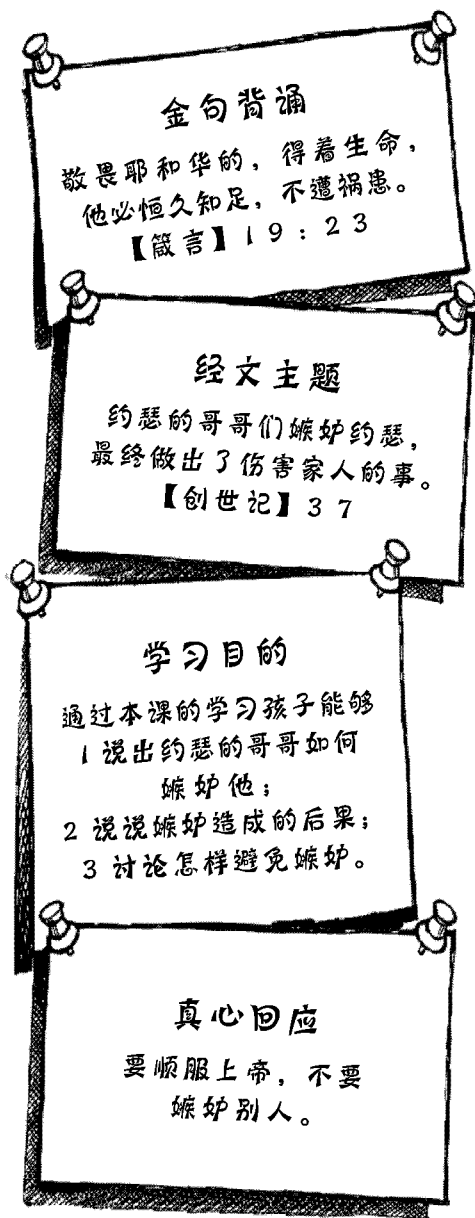 金句背诵
敬畏耶和华的，得着生命，
他必恒久知足，不遭祸患。
【箴言】19:23
经文主题
约瑟的哥哥们嫉妒约瑟，
最终做出了伤害家人的事。
【创世记】37
学习目的
通过本课的学习孩子能够
1 说出约瑟的哥哥如何
嫉妒他；
2 说说嫉妒造成的后果；
3 讨论怎样避免嫉妒。
真心回应
要顺服上帝，不要
嫉妒别人。